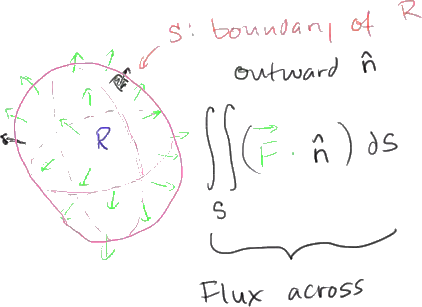 S: boundary of R
outward n̂
R
∬ (F⃗ · n̂) dS
S
Flux across